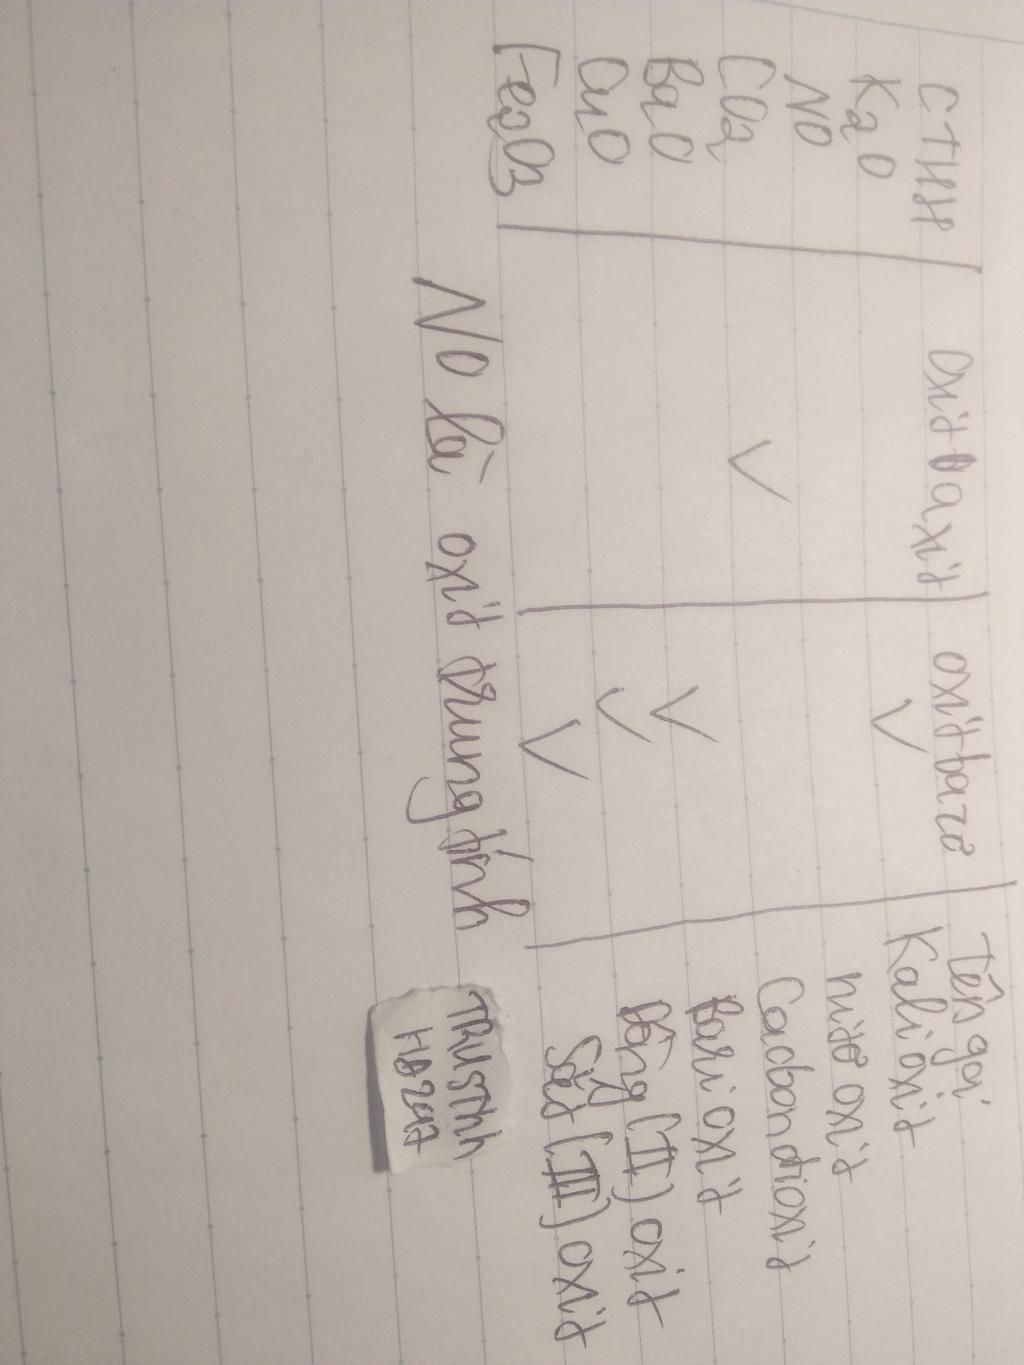 CTHH oxit axit oxit bazơ Tên gọi
K2O V Kali oxit
NO nitơ oxit
CO2 V Cacbon dioxit
BaO V Bari oxit
CuO V Đồng (II) oxit
Fe2O3 V Sắt (III) oxit
NO là oxit trung tính
TRUSTHh
HD247